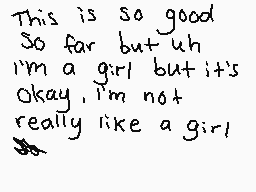 This is so good
So far but uh
I'm a girl but it's
okay, I'm not
really like a girl